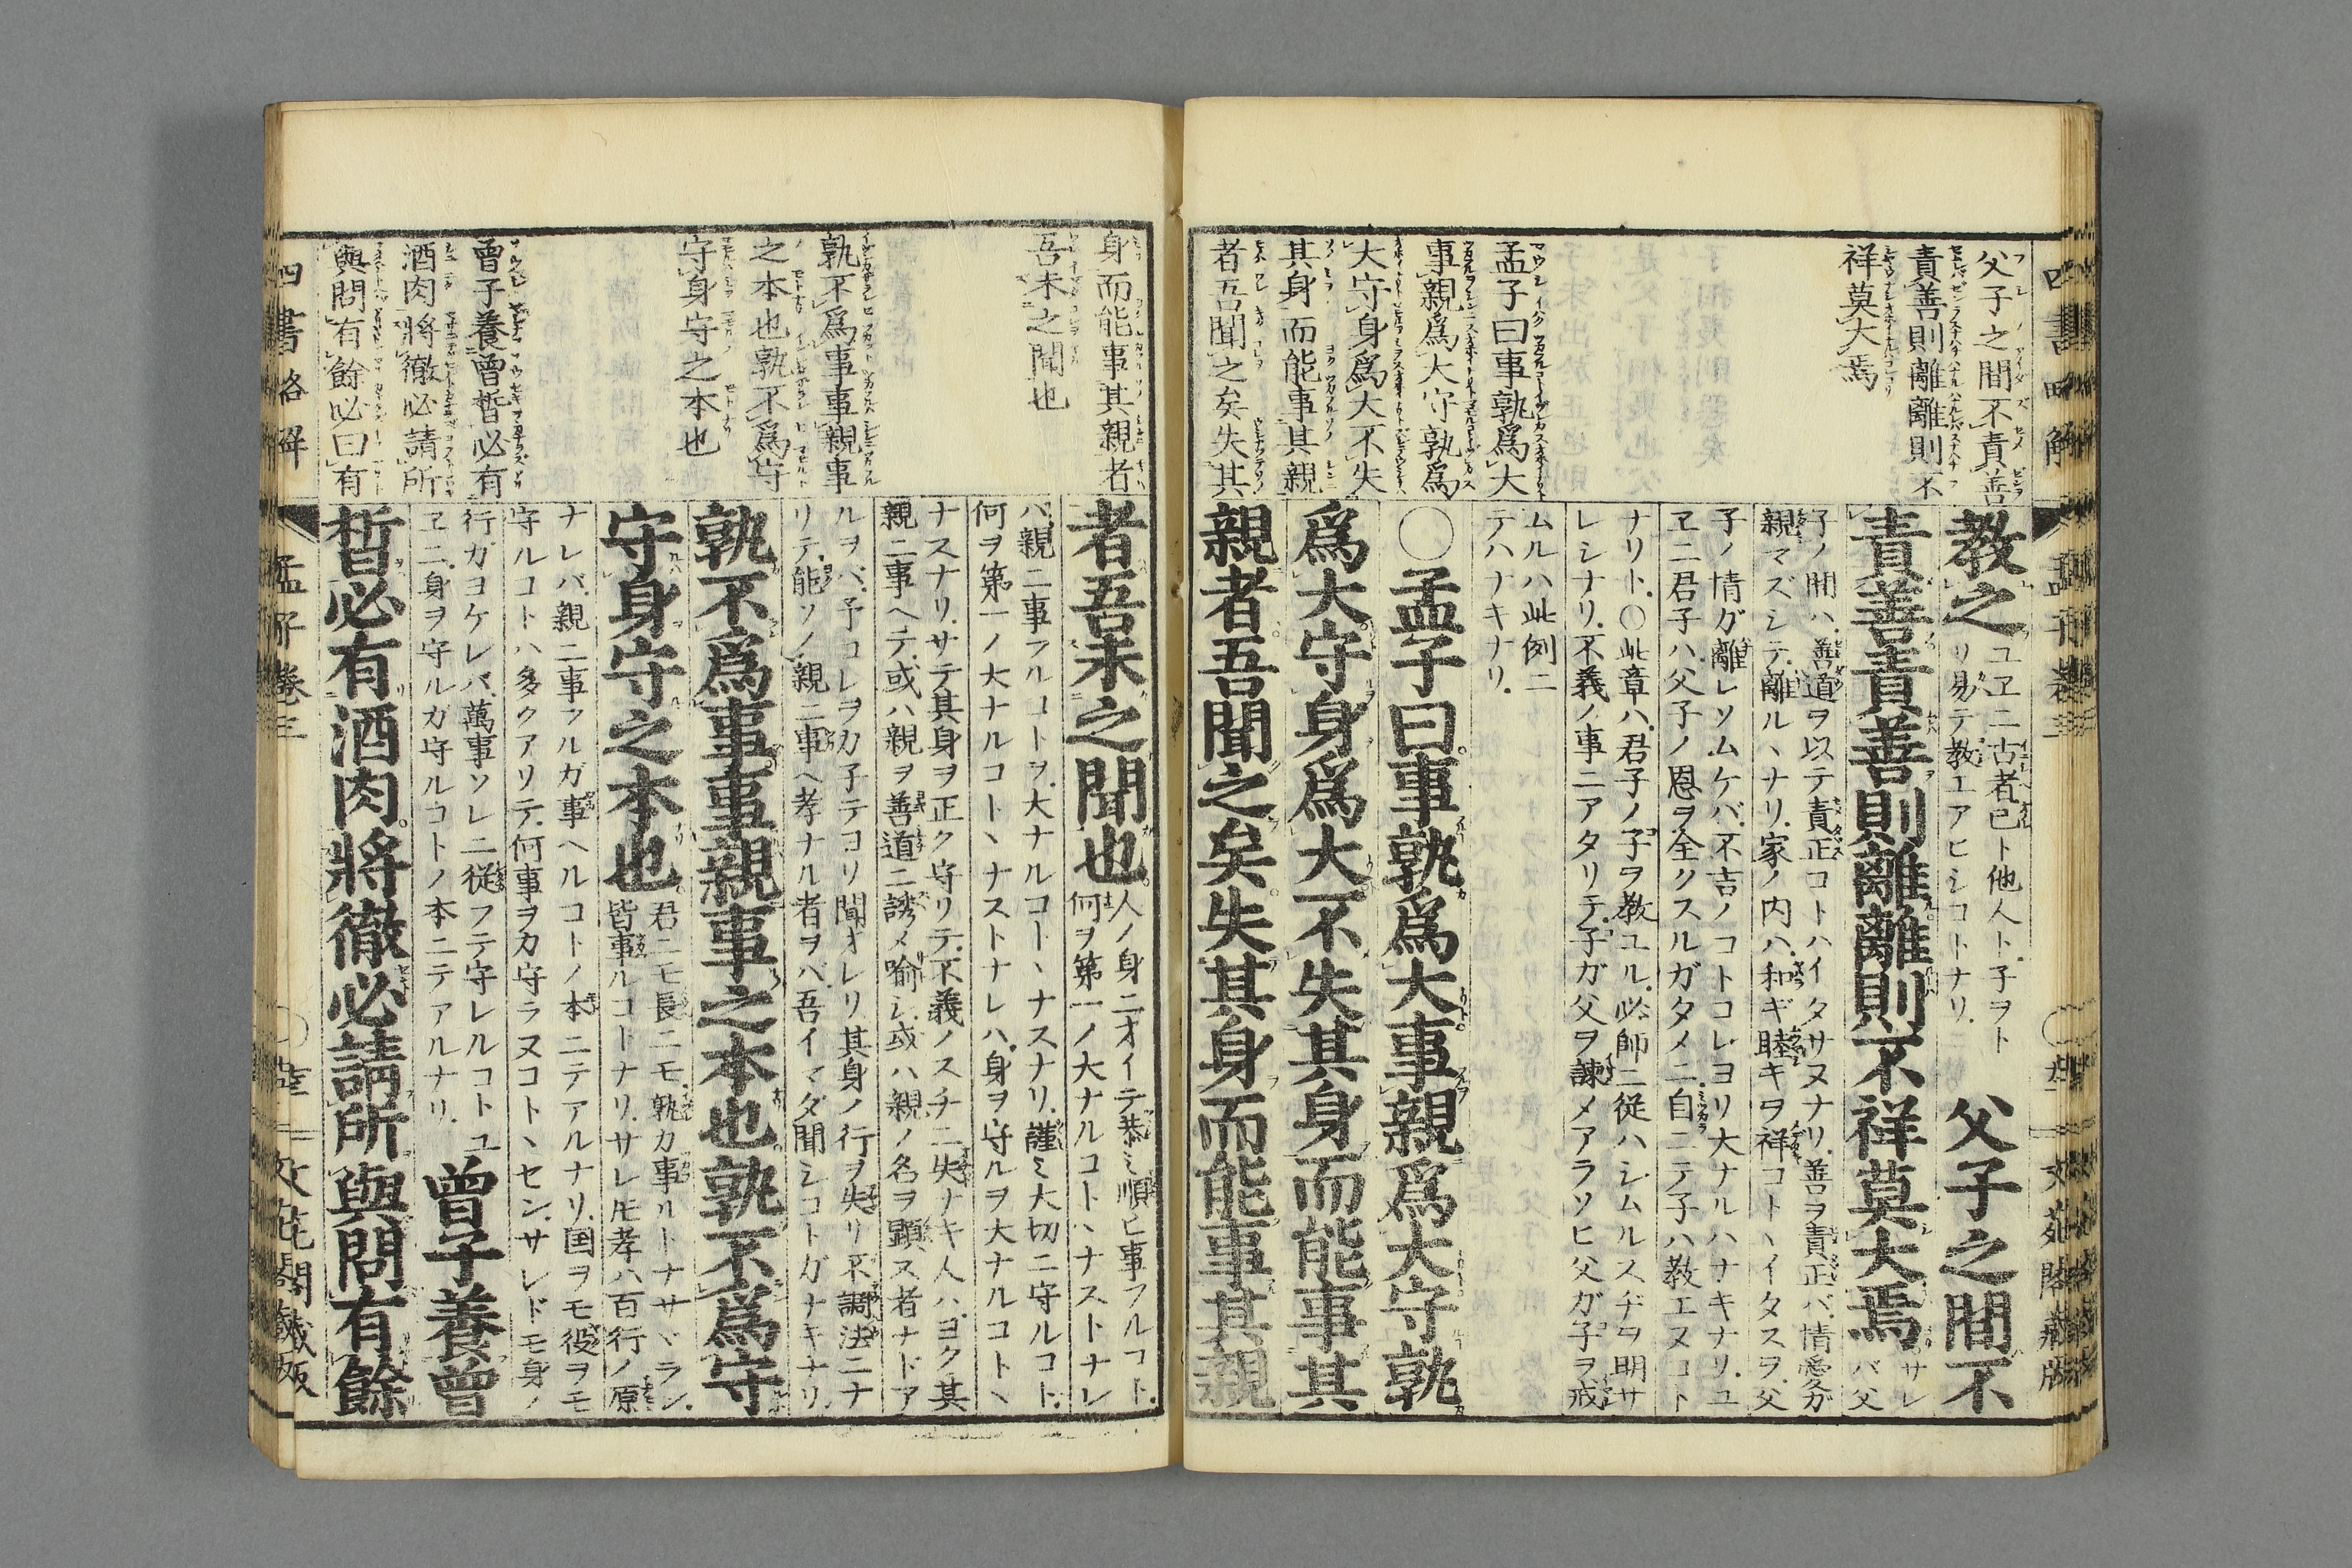 父子之間不責善
責善則離離則不
祥莫大焉
孟子曰事孰爲大
事親爲大守孰爲
大守身爲大不失
其身而能事其親
者吾聞之矣失其
教之
ユヱニ古者已ト他人ト子ヲト
リ易テ教エアヒシコトナリ.
父子之間不
責善責善則離離則不祥莫大焉
サレ
バ父
子ノ間ハ.善道ヲ以テ責正コトハイタサヌナリ.善ヲ責正バ.情愛ガ
親マズシテ.離ルヽナリ.家ノ内ハ.和ギ睦キヲ祥コトヽイタスヲ.父
子ノ情ガ離レソムケバ.不吉ノコトコレヨリ大ナルハナキナリ.ユ
ヱニ君子ハ.父子ノ恩ヲ全クスルガタメニ.自ニテ子ハ教エヌコト
ナリト.○此章ハ.君子ノ子ヲ教ユル.必師ニ従ハシムルスヂヲ明サ
レシナリ.不義ノ事ニアタリテ.子ガ父ヲ諫メアラソヒ父ガ子ヲ戒
ムルハ此例ニ
テハナキナリ.
○孟子曰事孰爲大事親爲大守孰
爲大守身爲大不失其身而能事其
親者吾聞之矣失其身而能事其親
身而能事其親者
吾未之聞也
孰不爲事事親事
之本也孰不爲守
守身守之本也
曾子養曾晳必有
酒肉將徹必請所
與問有餘必曰有
者吾未之聞也
人ノ身ニオイテ恭ミ順ヒ事フルコト.
何ヲ第一ノ大ナルコトヽナストナレ
バ.親ニ事フルコトヲ.大ナルコトヽナスナリ.謹ミ大切ニ守ルコト.
何ヲ第一ノ大ナルコトヽナストナレハ.身ヲ守ルヲ大ナルコトヽ
ナスナリ.サテ其身ヲ正ク守リテ.不義ノスチニ失ナキ人ハ.ヨク其
親ニ事ヘテ.或ハ親ヲ善道ニ誘メ喻シ.或ハ親ノ名ヲ顕ス者ナドア
ルヲバ.予コレヲカ子テヨリ聞オレリ其身ノ行ヲ失リ不調法ニナ
リテ.能ソノ親ニ事ヘ孝ナル者ヲバ.吾イマダ聞シコトガナキナリ.
孰不爲事事親事之本也孰不爲守
守身守之本也
君ニモ長ニモ.孰カ事ルトナサヾラン.
皆事ルコトナリ.サレ𪜈孝ハ百行ノ原
ナレバ.親ニ事フルガ事ヘルコトノ本ニテアルナリ.国ヲモ役ヲモ
守ルコトハ多クアリテ.何事ヲカ守ラヌコトヽセン.サレドモ身ノ
行ガヨケレバ.萬事ソレニ従フテ守レルコトユ
ヱニ.身ヲ守ルガ守ルコトノ本ニテアルナリ.
曾子養曾
晳必有酒肉將徹必請所與問有餘
四書略解
孟子卷三
文花閣藏版